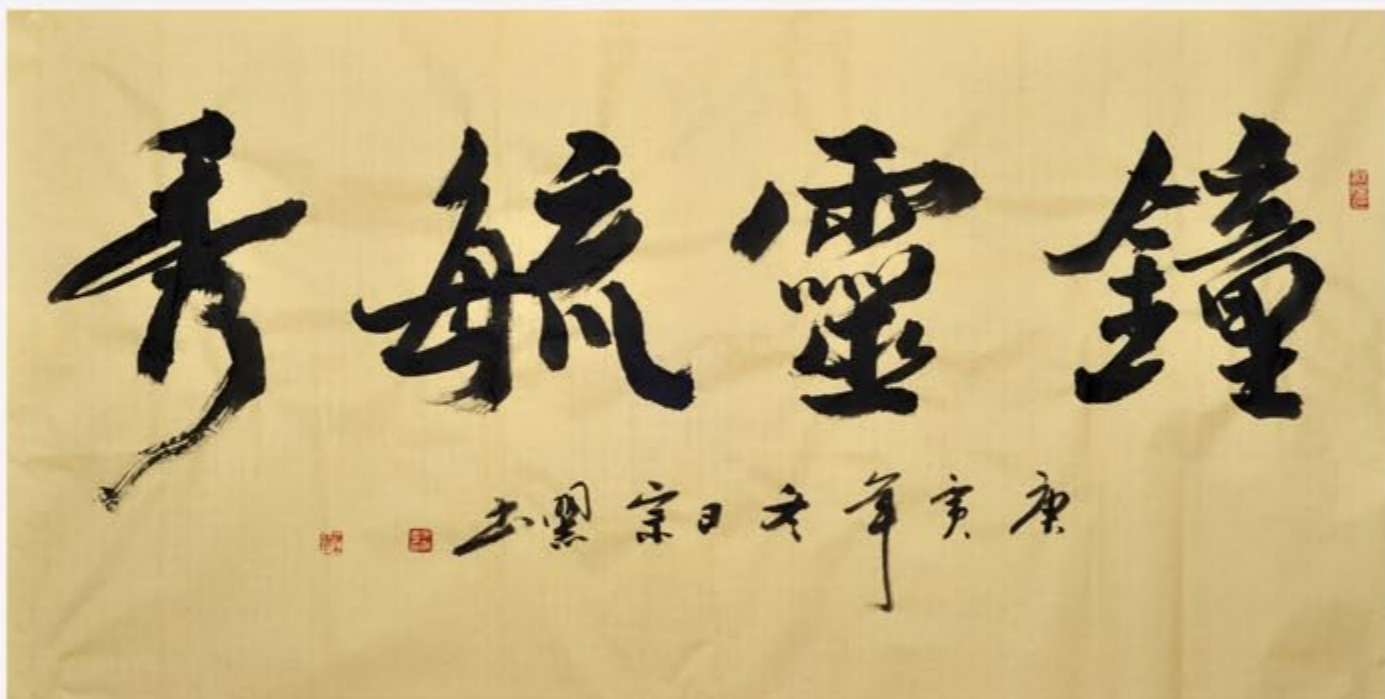 鐘靈毓秀
庚寅年冬日宗書